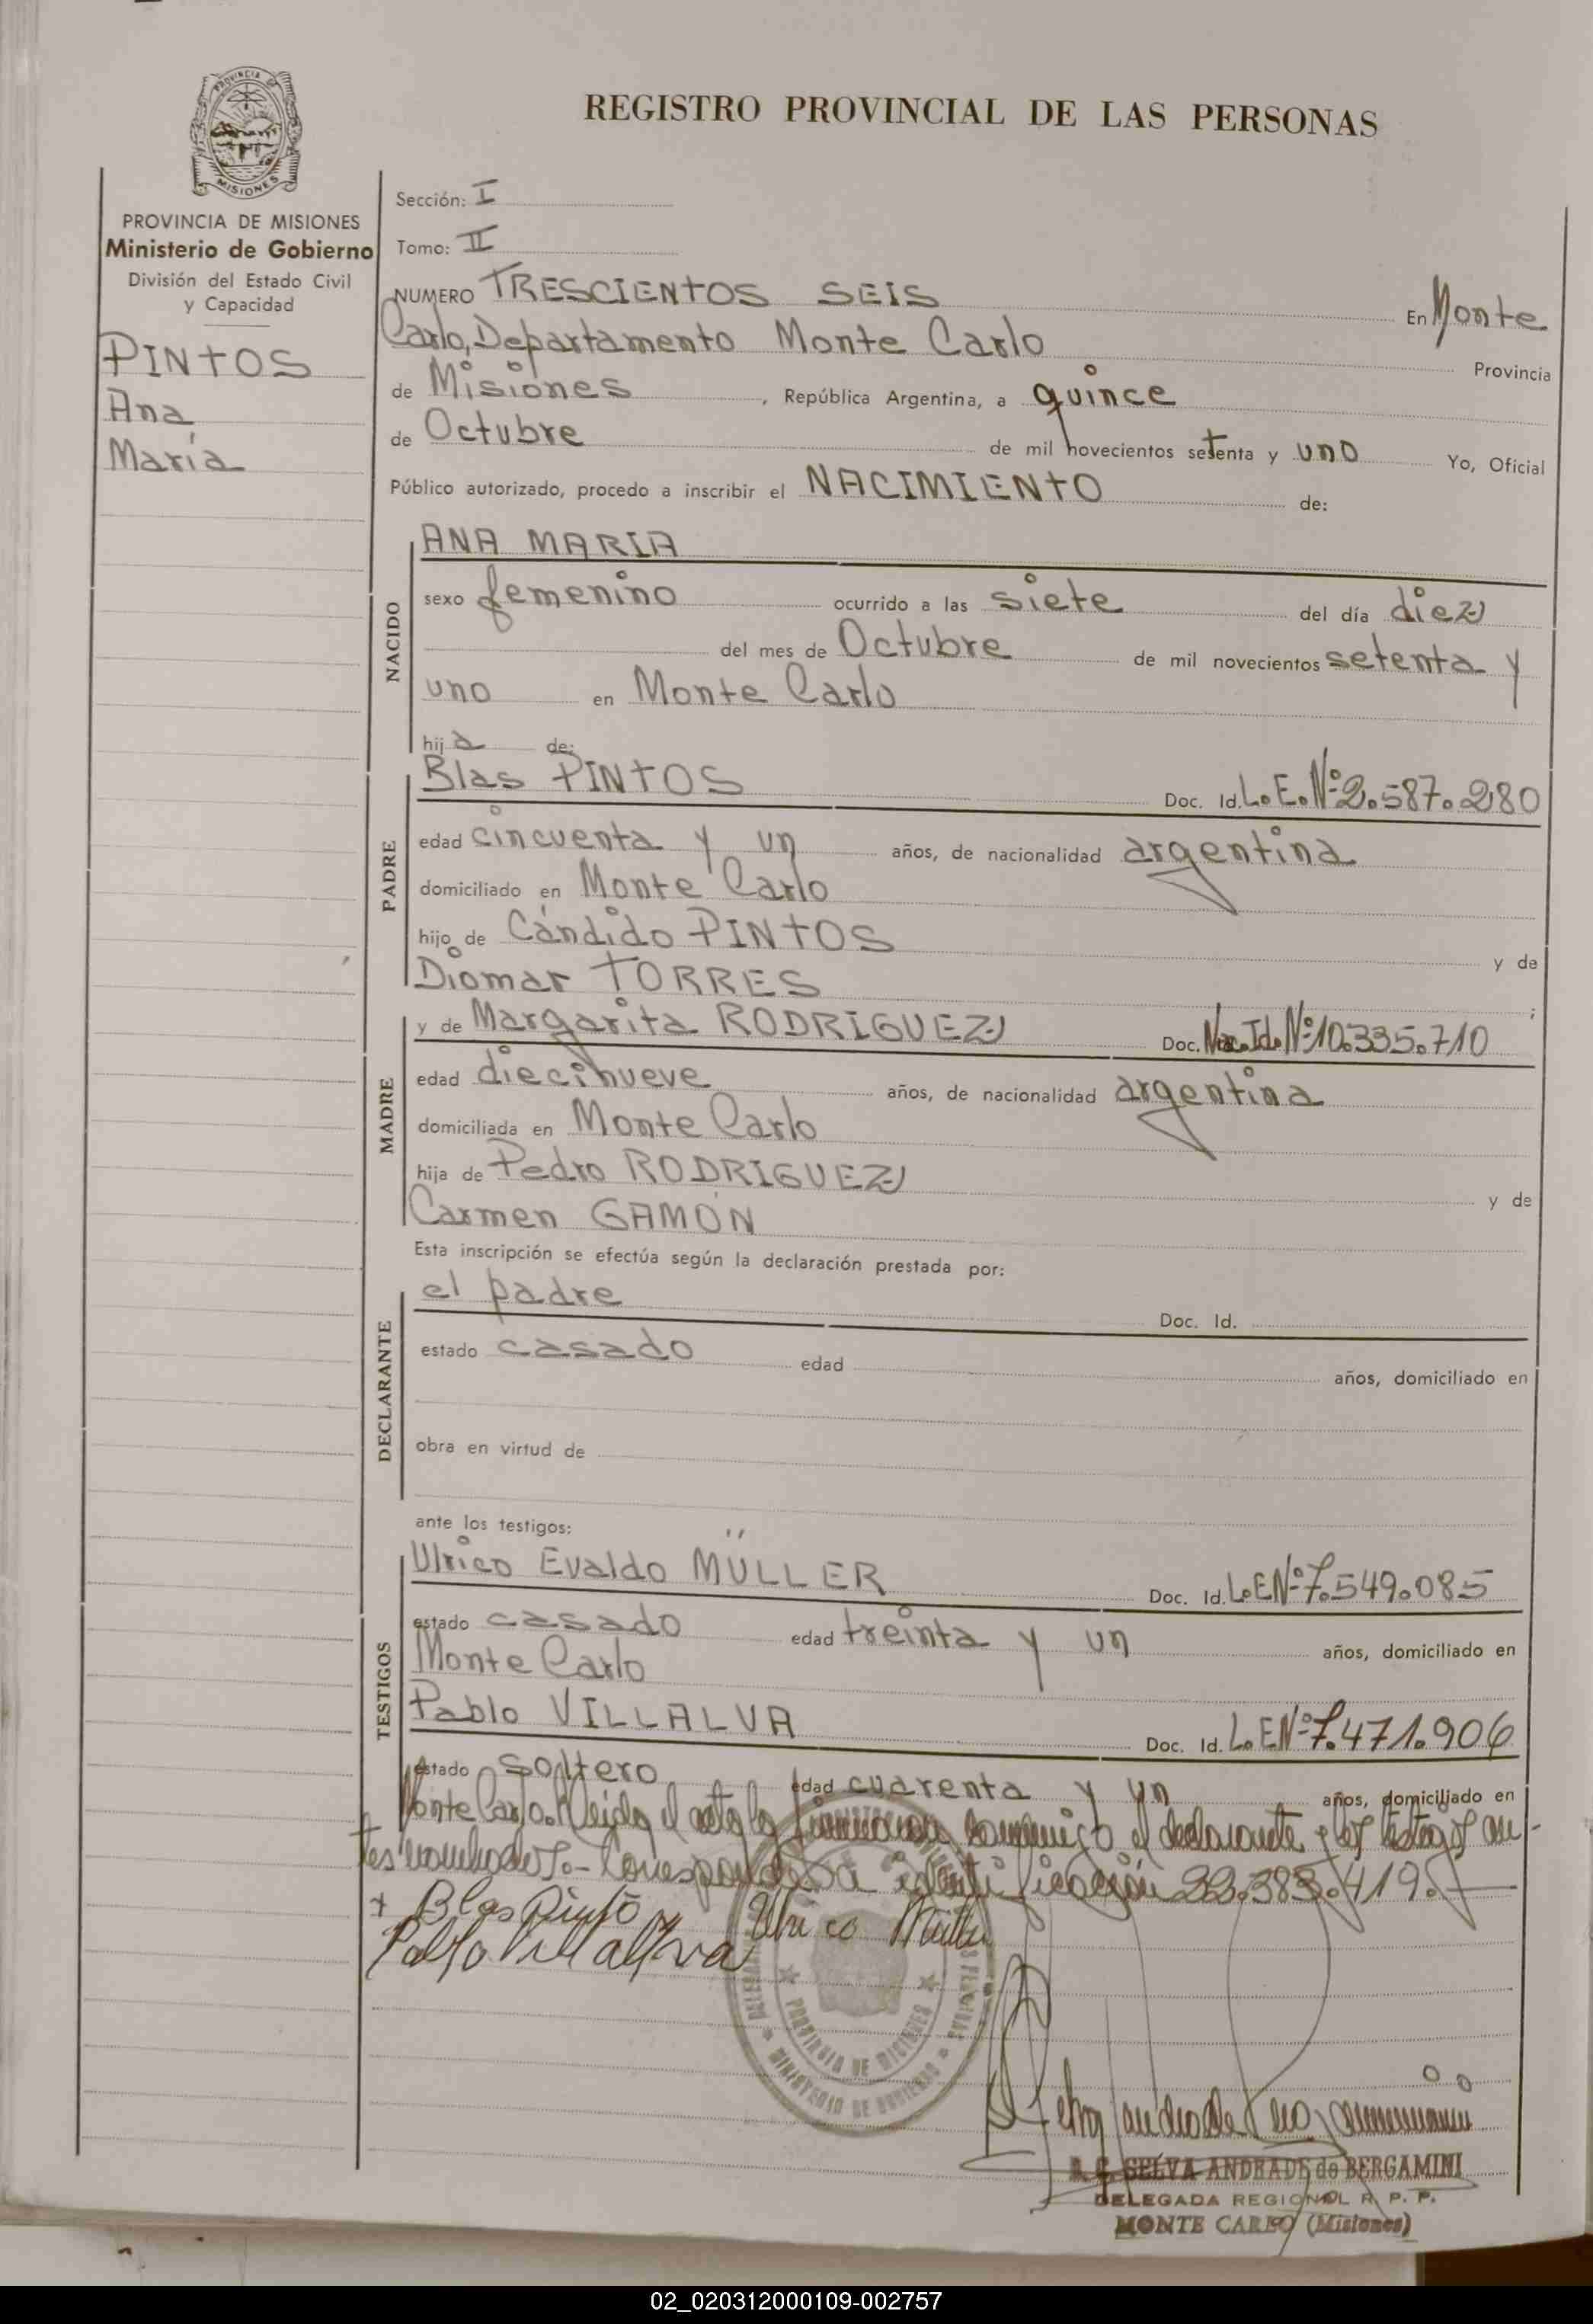 PROVINCIA DE
MISIONES
REGISTRO PROVINCIAL DE LAS PERSONAS
PROVINCIA DE MISIONES
Ministerio de Gobierno
División del Estado Civil
y Capacidad
PINTOS
Ana
María
Sección: I
Tomo: II
NUMERO TRESCIENTOS SEIS En Monte
Carlo, Departamento Monte Carlo Provincia
de Misiones, República Argentina, a quince
de Octubre de mil novecientos setenta y uno Yo, Oficial
Público autorizado, procedo a inscribir el NACIMIENTO de:
NACIDO
ANA MARIA
sexo femenino ocurrido a las siete del día diez
del mes de Octubre de mil novecientos setenta y
uno en Monte Carlo
hija de:
PADRE
Blas PINTOS Doc. Id. L.E.Nº2.587.280
edad cincuenta y un años, de nacionalidad argentina
domiciliado en Monte Carlo
hijo de Cándido PINTOS y de
Diomar TORRES ;
MADRE
y de Margarita RODRIGUEZ Doc. Nac.Id.Nº10.335.710
edad diecinueve años, de nacionalidad argentina
domiciliada en Monte Carlo
hija de Pedro RODRIGUEZ y de
Carmen GAMÓN
Esta inscripción se efectúa según la declaración prestada por:
DECLARANTE
el padre Doc. Id.
estado casado edad años, domiciliado en
obra en virtud de
ante los testigos:
TESTIGOS
Ulrico Evaldo MÜLLER Doc. Id. L.E.Nº7.549.085
estado casado edad treinta y un años, domiciliado en
Monte Carlo
Pablo VILLALVA Doc. Id. L.E.Nº7.471.906
estado soltero edad cuarenta y un años, domiciliado en
Monte Carlo. Leída el acta la firman conmigo el declarante y los testigos an-
tes nombrados.- Corresponde a identificación 22.383.419.
+ Blas Pinto Ulrico Müller
Pablo Villalva
PROVINCIA DE MISIONES
MINISTERIO DE GOBIERNO
SELVA ANDRADE de BERGAMINI
DELEGADA REGIONAL R. P. P.
MONTE CARLO (Misiones)
02_020312000109-002757